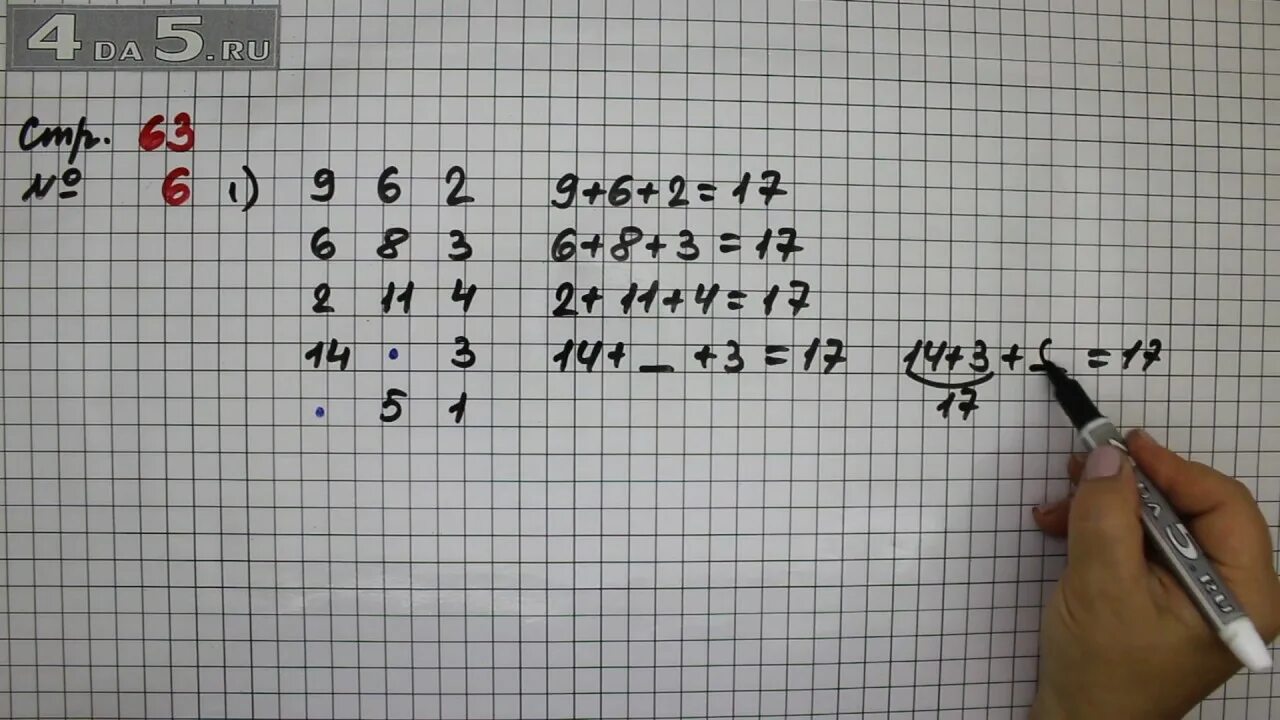 4DA5.RU
Стр. 63
№ 6 1) 9 6 2 9+6+2=17
6 8 3 6+8+3=17
2 11 4 2+11+4=17
14 · 3 14+_+3=17 14+3+_=17
17
· 5 1
DA 5.RU